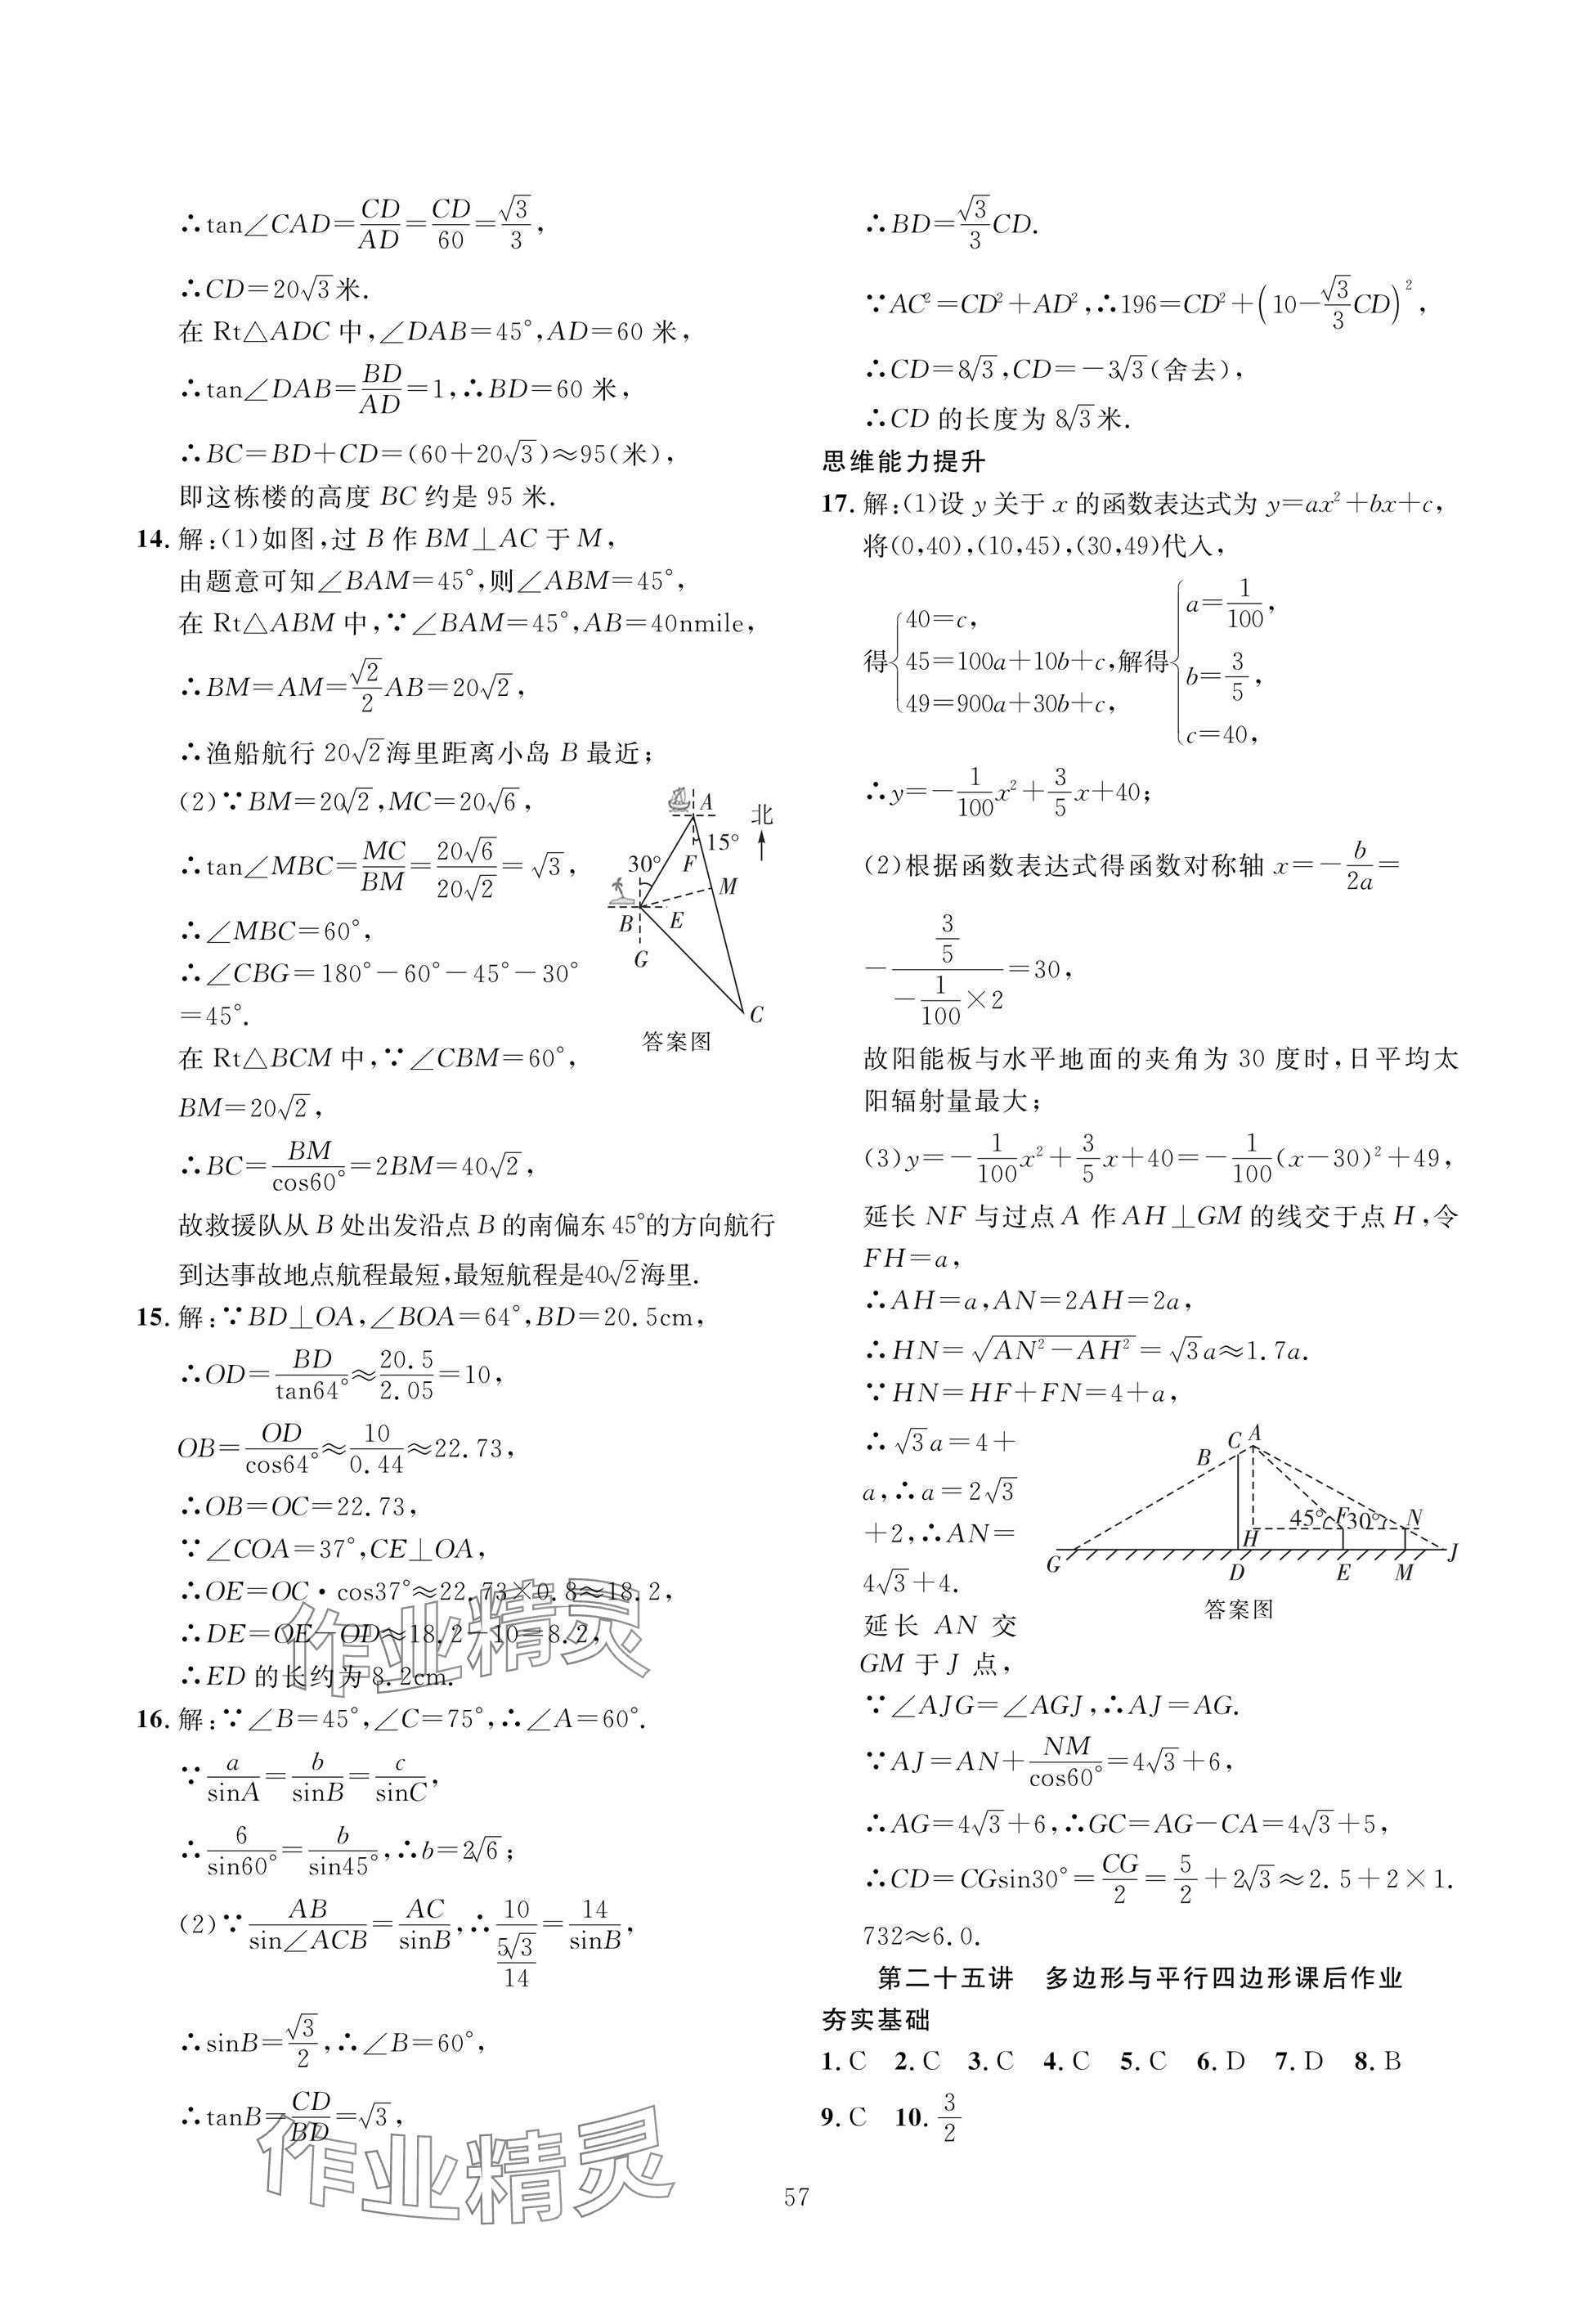 ∴tan∠CAD=CD/AD=CD/60=√3/3,
∴CD=20√3米.
在 Rt△ADC 中,∠DAB=45°,AD=60 米,
∴tan∠DAB=BD/AD=1,∴BD=60 米,
∴BC=BD+CD=(60+20√3)≈95(米),
即这栋楼的高度 BC 约是 95 米.
14. 解:(1)如图,过 B 作 BM⊥AC 于 M,
由题意可知∠BAM=45°,则∠ABM=45°,
在 Rt△ABM 中,∵∠BAM=45°,AB=40nmile,
∴BM=AM=√2/2AB=20√2,
∴渔船航行 20√2海里距离小岛 B 最近;
(2)∵BM=20√2,MC=20√6,
∴tan∠MBC=MC/BM=20√6/20√2=√3,
∴∠MBC=60°,
∴∠CBG=180°-60°-45°-30°
=45°.
在 Rt△BCM 中,∵∠CBM=60°,
BM=20√2,
∴BC=BM/cos60°=2BM=40√2,
故救援队从 B 处出发沿点 B 的南偏东 45°的方向航行
到达事故地点航程最短,最短航程是40√2海里.
A
北
15°
30°
F
M
B
E
G
C
答案图
15. 解:∵BD⊥OA,∠BOA=64°,BD=20.5cm,
∴OD=BD/tan64°≈20.5/2.05=10,
OB=OD/cos64°≈10/0.44≈22.73,
∴OB=OC=22.73,
∵∠COA=37°,CE⊥OA,
∴OE=OC·cos37°≈22.73×0.8≈18.2,
∴DE=OE-OD≈18.2-10=8.2,
∴ED 的长约为 8.2cm.
16. 解:∵∠B=45°,∠C=75°,∴∠A=60°.
∵a/sinA=b/sinB=c/sinC,
∴6/sin60°=b/sin45°,∴b=2√6;
(2)∵AB/sin∠ACB=AC/sinB,∴10/(5√3/14)=14/sinB,
∴sinB=√3/2,∴∠B=60°,
∴tanB=CD/BD=√3,
∴BD=√3/3CD.
∵AC²=CD²+AD²,∴196=CD²+(10-√3/3CD)²,
∴CD=8√3,CD=-3√3(舍去),
∴CD 的长度为 8√3米.
思维能力提升
17. 解:(1)设 y 关于 x 的函数表达式为 y=ax²+bx+c,
将(0,40),(10,45),(30,49)代入,
得{40=c, 45=100a+10b+c, 49=900a+30b+c, 解得{a=1/100, b=3/5, c=40,
∴y=-1/100x²+3/5x+40;
(2)根据函数表达式得函数对称轴 x=-b/2a=
-(3/5)/(-1/100×2)=30,
故阳能板与水平地面的夹角为 30 度时,日平均太
阳辐射量最大;
(3)y=-1/100x²+3/5x+40=-1/100(x-30)²+49,
延长 NF 与过点 A 作 AH⊥GM 的线交于点 H,令
FH=a,
∴AH=a,AN=2AH=2a,
∴HN=√(AN²-AH²)=√3a≈1.7a.
∵HN=HF+FN=4+a,
∴√3a=4+
a,∴a=2√3
+2,∴AN=
4√3+4.
延长 AN 交
GM 于 J 点,
B
C
A
45°
F
30°
N
H
G
D
E
M
J
答案图
∵∠AJG=∠AGJ,∴AJ=AG.
∵AJ=AN+NM/cos60°=4√3+6,
∴AG=4√3+6,∴GC=AG-CA=4√3+5,
∴CD=CGsin30°=CG/2=5/2+2√3≈2.5+2×1.
732≈6.0.
第二十五讲 多边形与平行四边形课后作业
夯实基础
1. C 2. C 3. C 4. C 5. C 6. D 7. D 8. B
9. C 10. 3/2
57
作业精灵
作业精灵